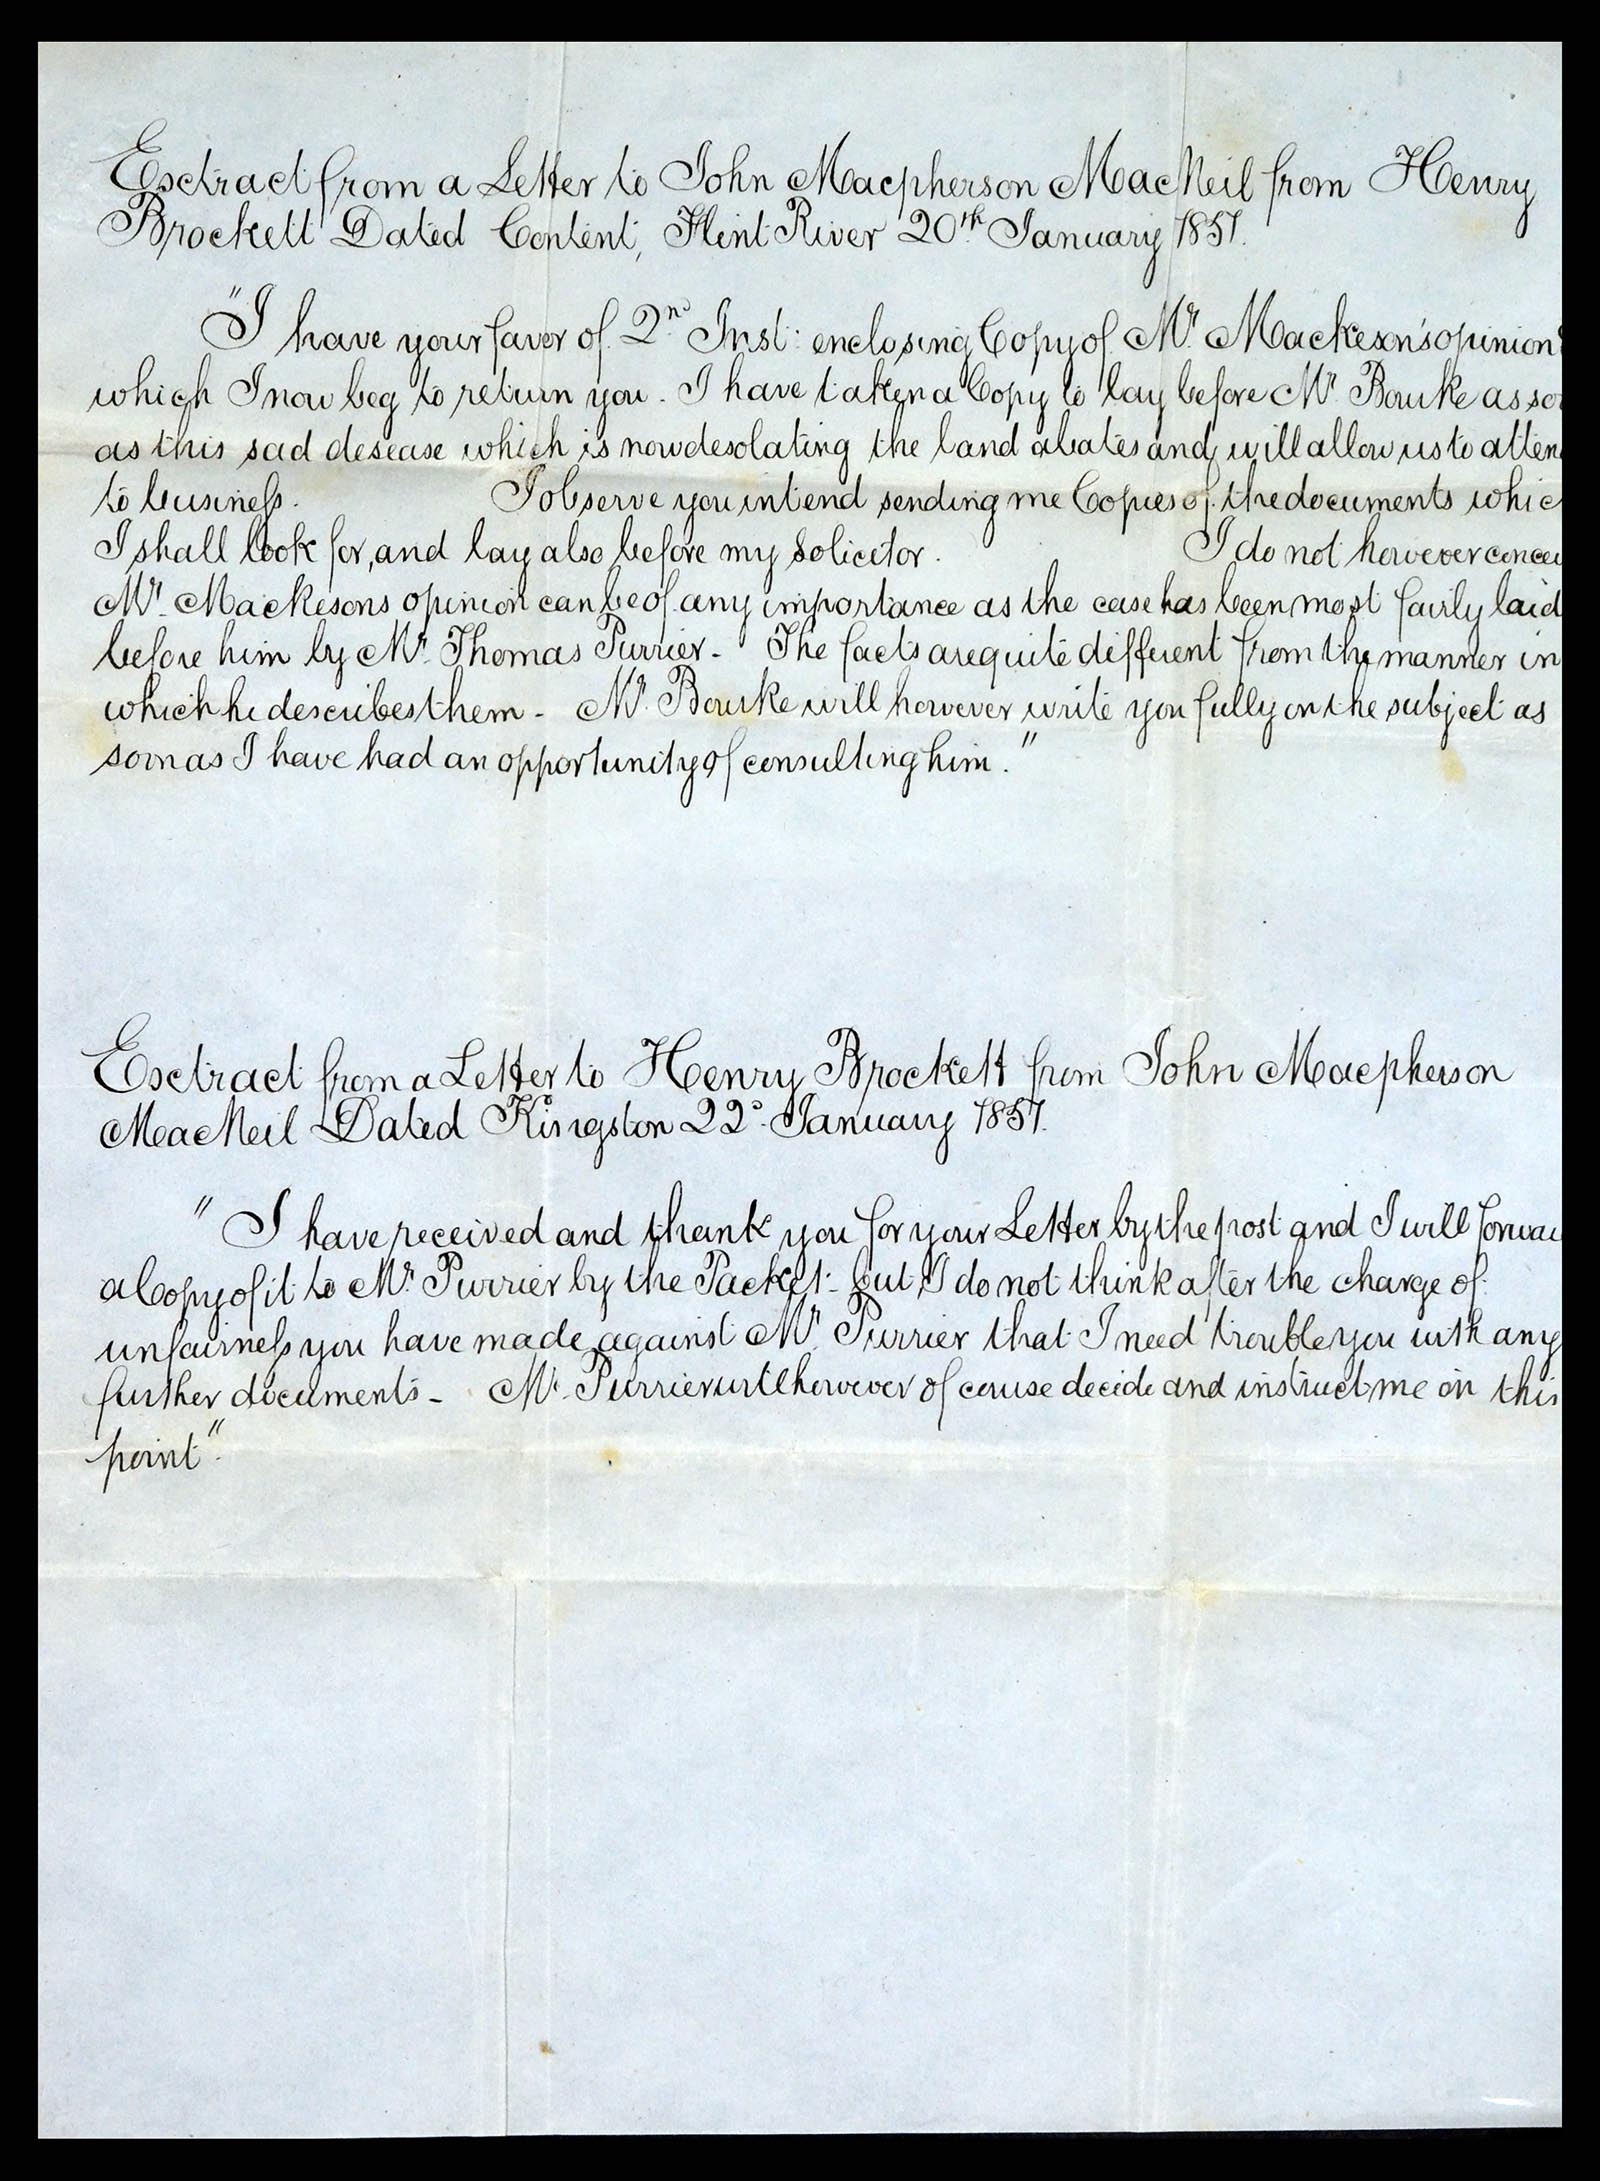 Extract from a Letter to John Macpherson MacNeil from Henry
Brockett Dated Content, Flint River 20th January 1851.
"I have your favor of 2nd Inst: enclosing Copy of Mr. Mackeson's opinion
which I now beg to return you. I have taken a Copy to lay before Mr. Bourke as soo
as this sad desease which is now desolating the land abates and will allow us to atten
to business.     I observe you intend sending me Copies of the documents whic
I shall look for, and lay also before my Solicitor.     I do not however concei
Mr. Mackesons opinion can be of any importance as the case has been most fairly laid
before him by Mr. Thomas Purrier - The facts are quite different from the manner in
which he describes them - Mr. Bourke will however write you fully on the subject as
soon as I have had an opportunity of consulting him."
Extract from a Letter to Henry Brockett from John Macpherson
MacNeil Dated Kingston 22d. January 1851.
"I have received and thank you for your Letter by the post and I will forwar
a Copy of it to Mr. Purrier by the Packet - but I do not think after the charge of
unfairness you have made against Mr. Purrier that I need trouble you with any
further documents - Mr. Purrier will however of course decide and instruct me on this
point".